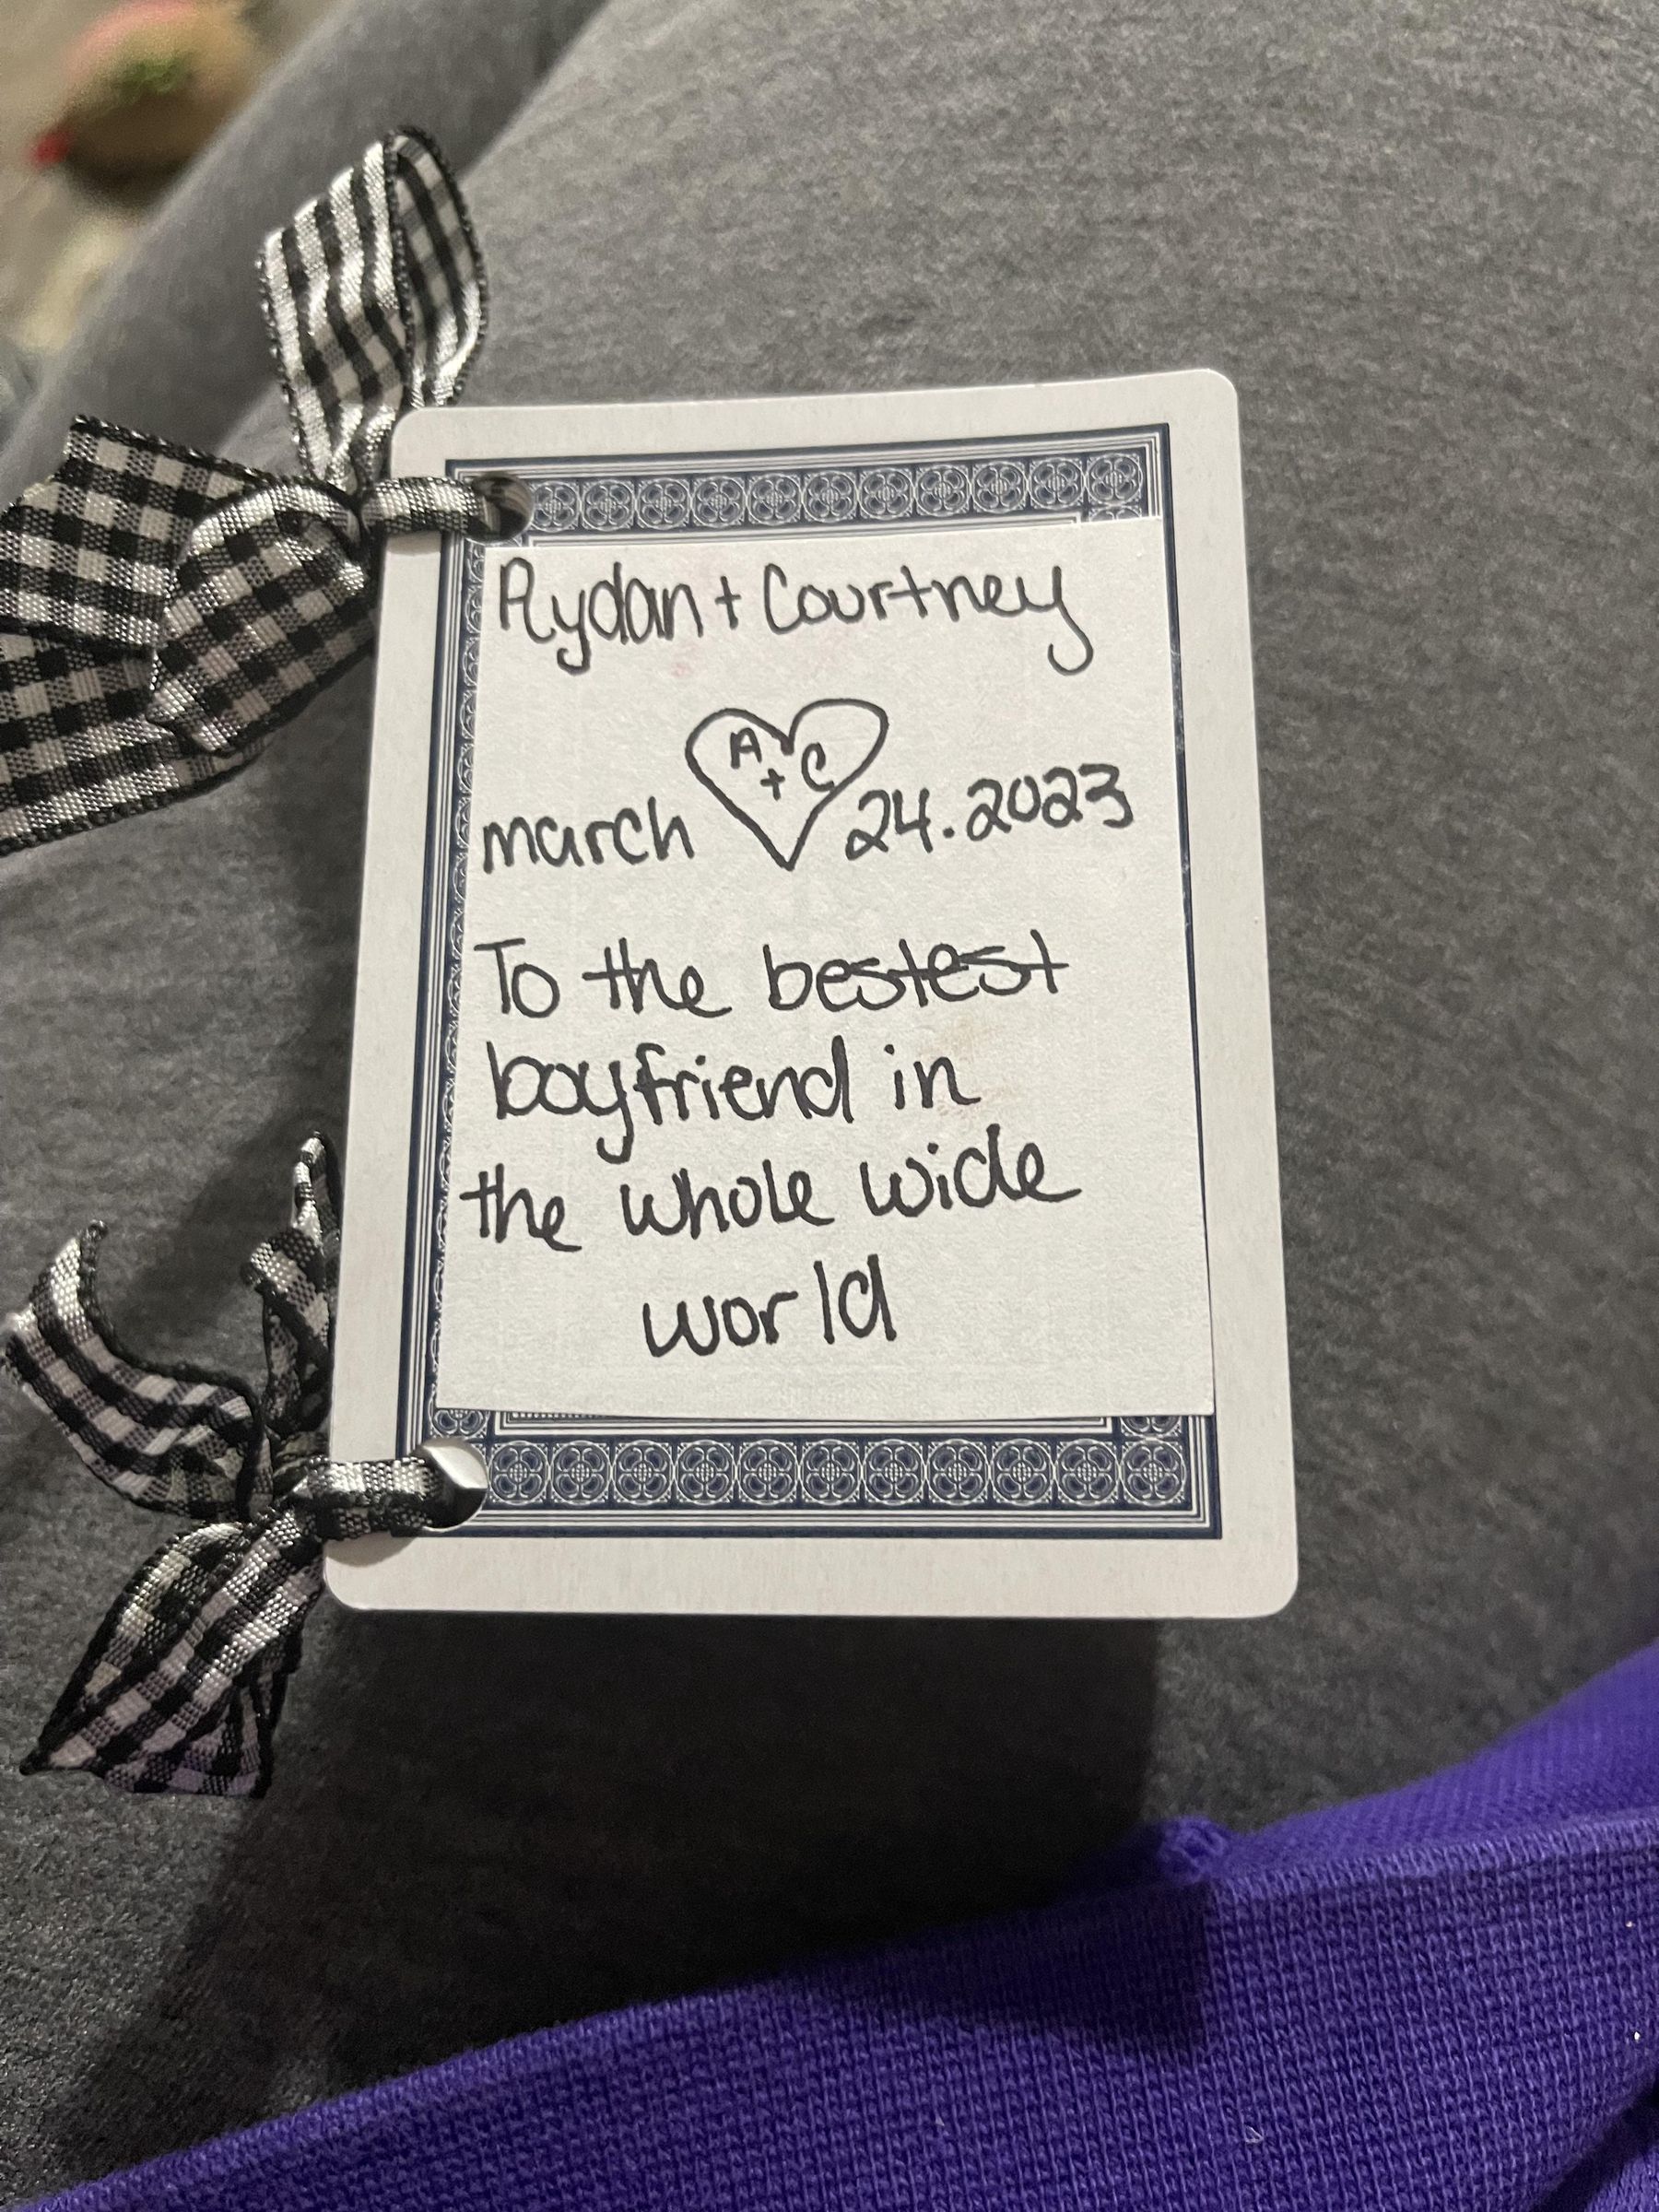 Aydan + Courtney
A + C
march 24.2023
To the bestest
boyfriend in
the whole wide
world